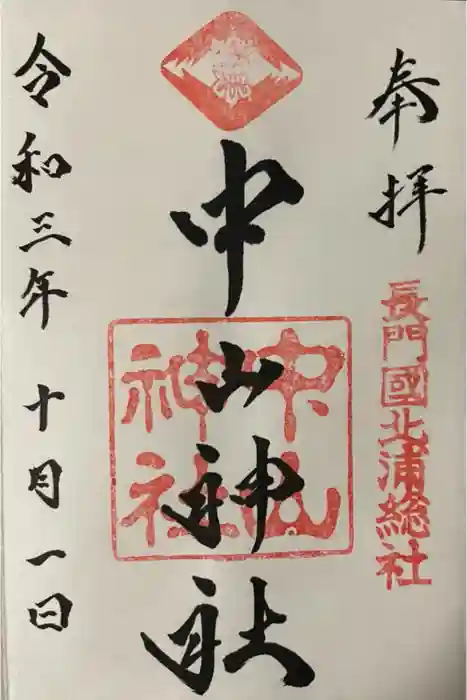 奉拝
長門國北浦総社
中山神社
中山
神社
令和三年 十月一日